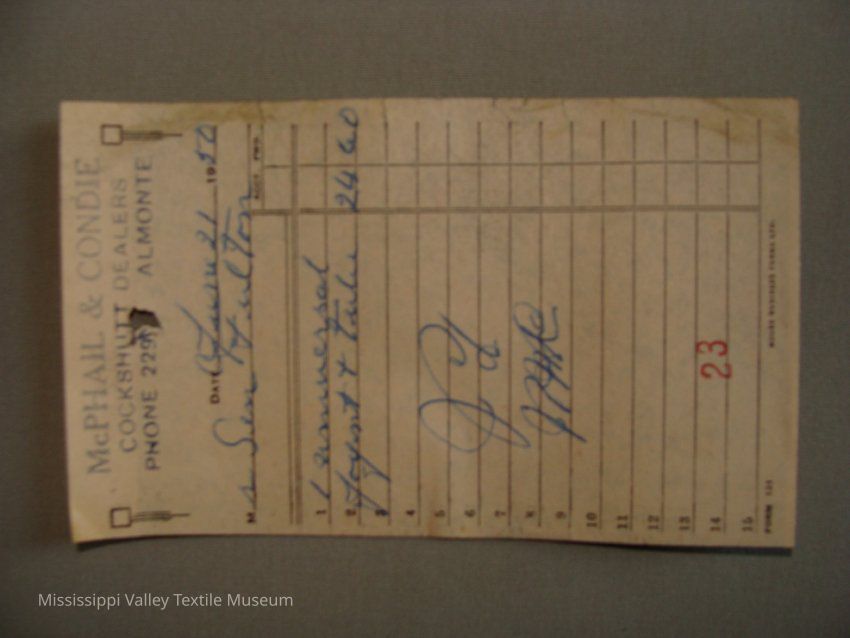 McPHAIL & CONDIE
COCKSHUTT DEALERS
PHONE 229 ALMONTE
DATE June 21 1950
M
ACCT. FWD.
1 1 universal
2 Joynt & Tube 24 60
3
4
5
6
7
8
9
10
11
12
13
14 23
15
FORM 151
Mississippi Valley Textile Museum